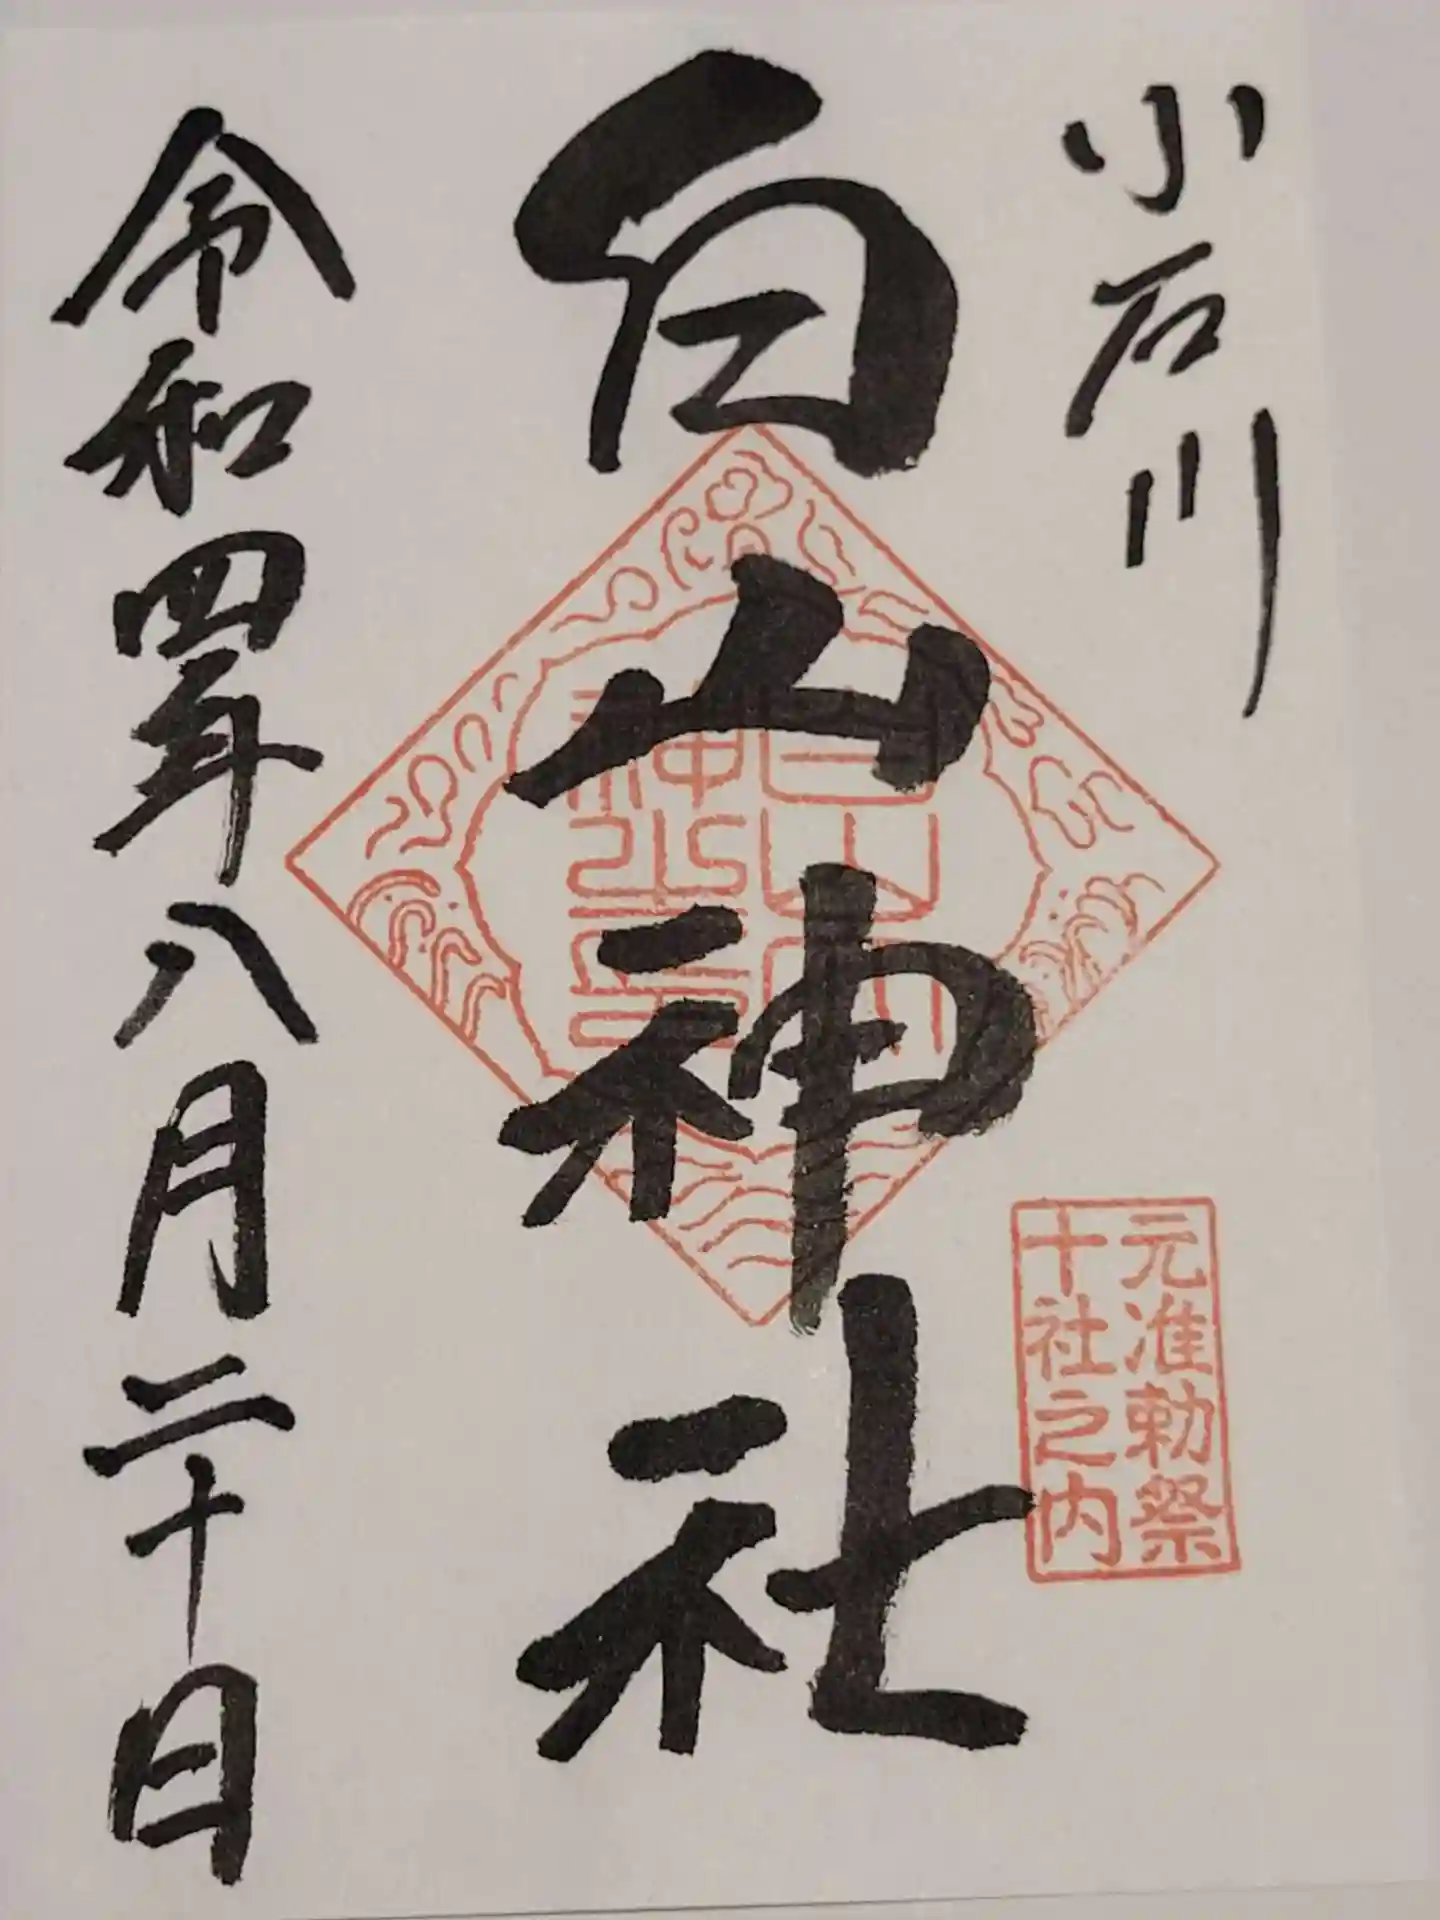 小石川
白山神社
令和四年八月二十日
元准勅祭
十社之内